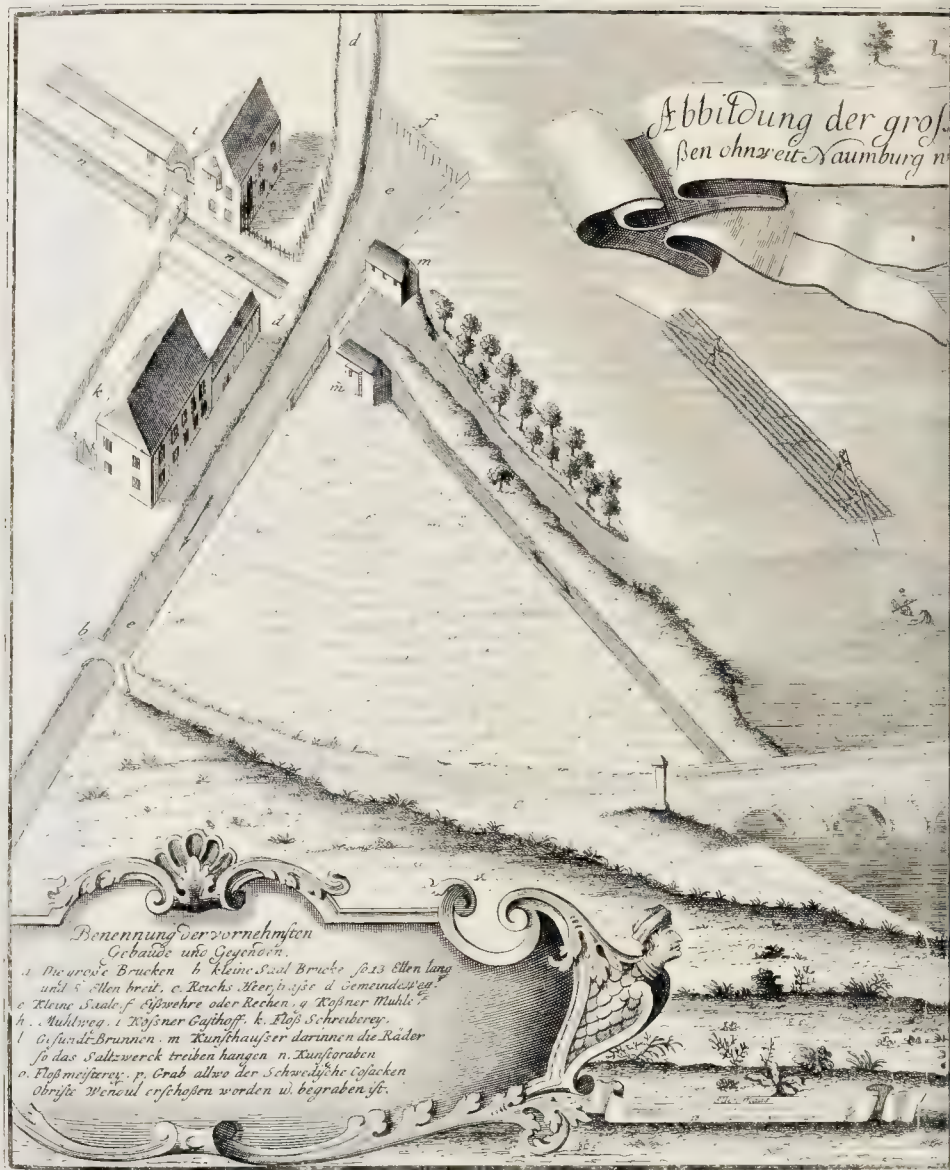 d
Abbildung der grof-
ßen ohnweit Naumburg n
f
i
e
n
m
n
d
m
k
b
e
Benennung der vornehmsten
Gebäude und Gegenden.
a Die große Brucken b kleine Saal Brucke so 13 Ellen lang
und 5 Ellen breit, c. Reichs Heerstrasse d Gemeindeweg.
e Kleine Saale, f Eißwehre oder Rechen, g Koßner Muhle
h. Muhlweg, i Kößner Gasthoff, k. Floß Schreiberey.
l Gesundt Brunnen. m Kunsthauser darinnen die Räder
so das Saltzwerck treiben hangen n. Kunstgraben
o. Floßmeisterey. p. Grab allwo der Schwedische Cosacken
Obriste Wendul erschoßen worden u. begraben ist.